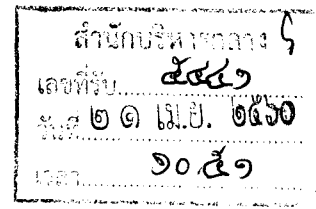 สำนักบริหารกลาง
เลขที่รับ ๕๔๔๑
วันที่ ๒๑ เม.ย. ๒๕๖๐
เวลา ๑๐.๕๑